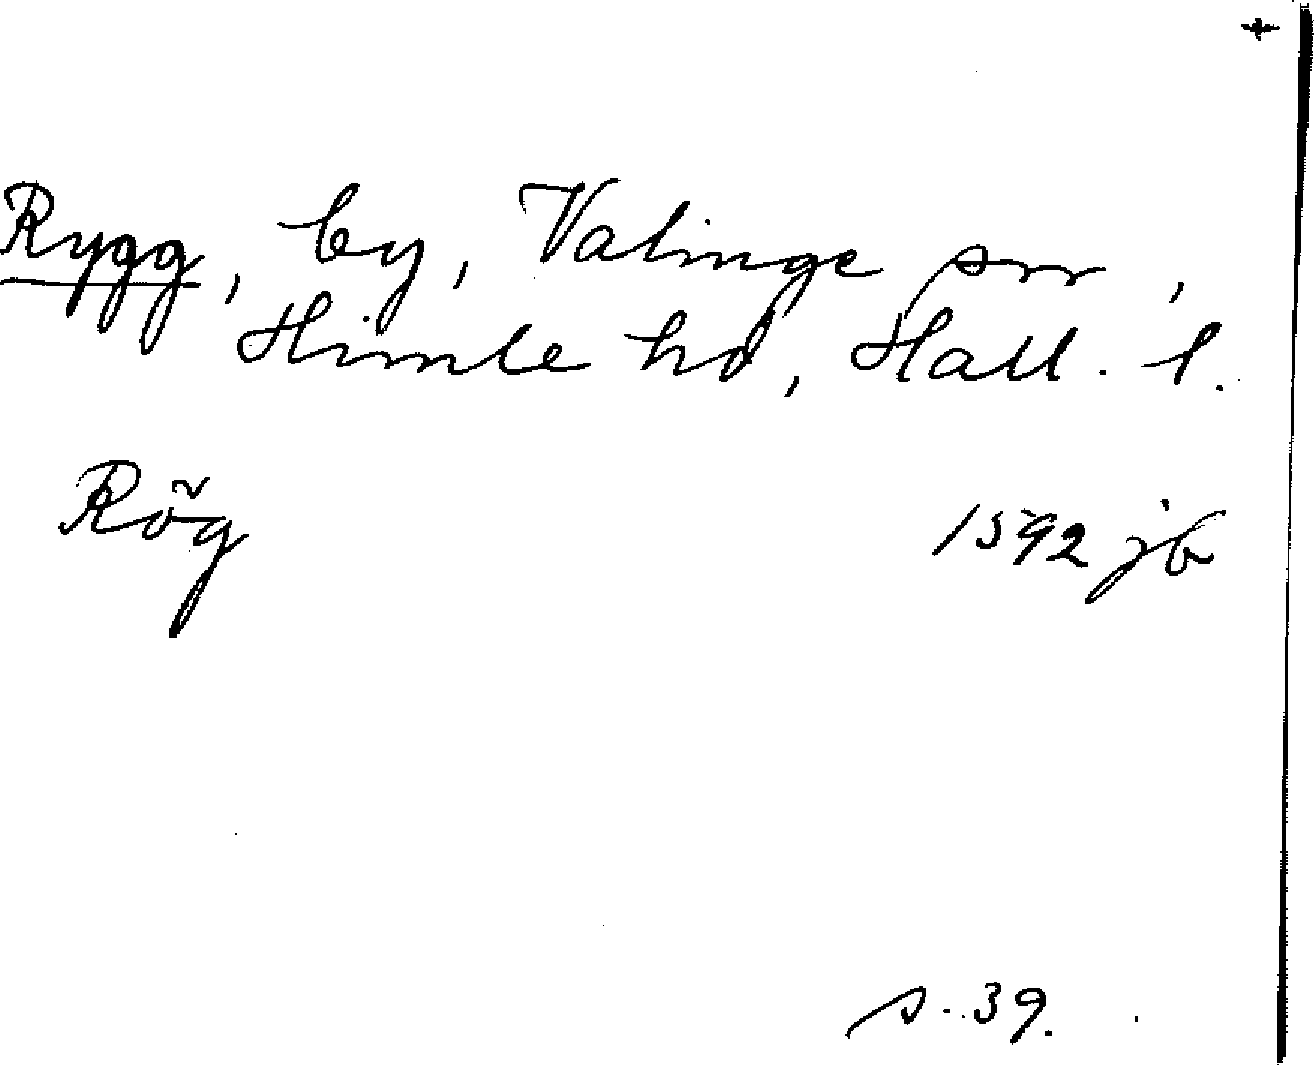 +
Rygg, by, Valinge sn,
Himle hd, Hall. l.
Rög 1592 jb
s. 39.